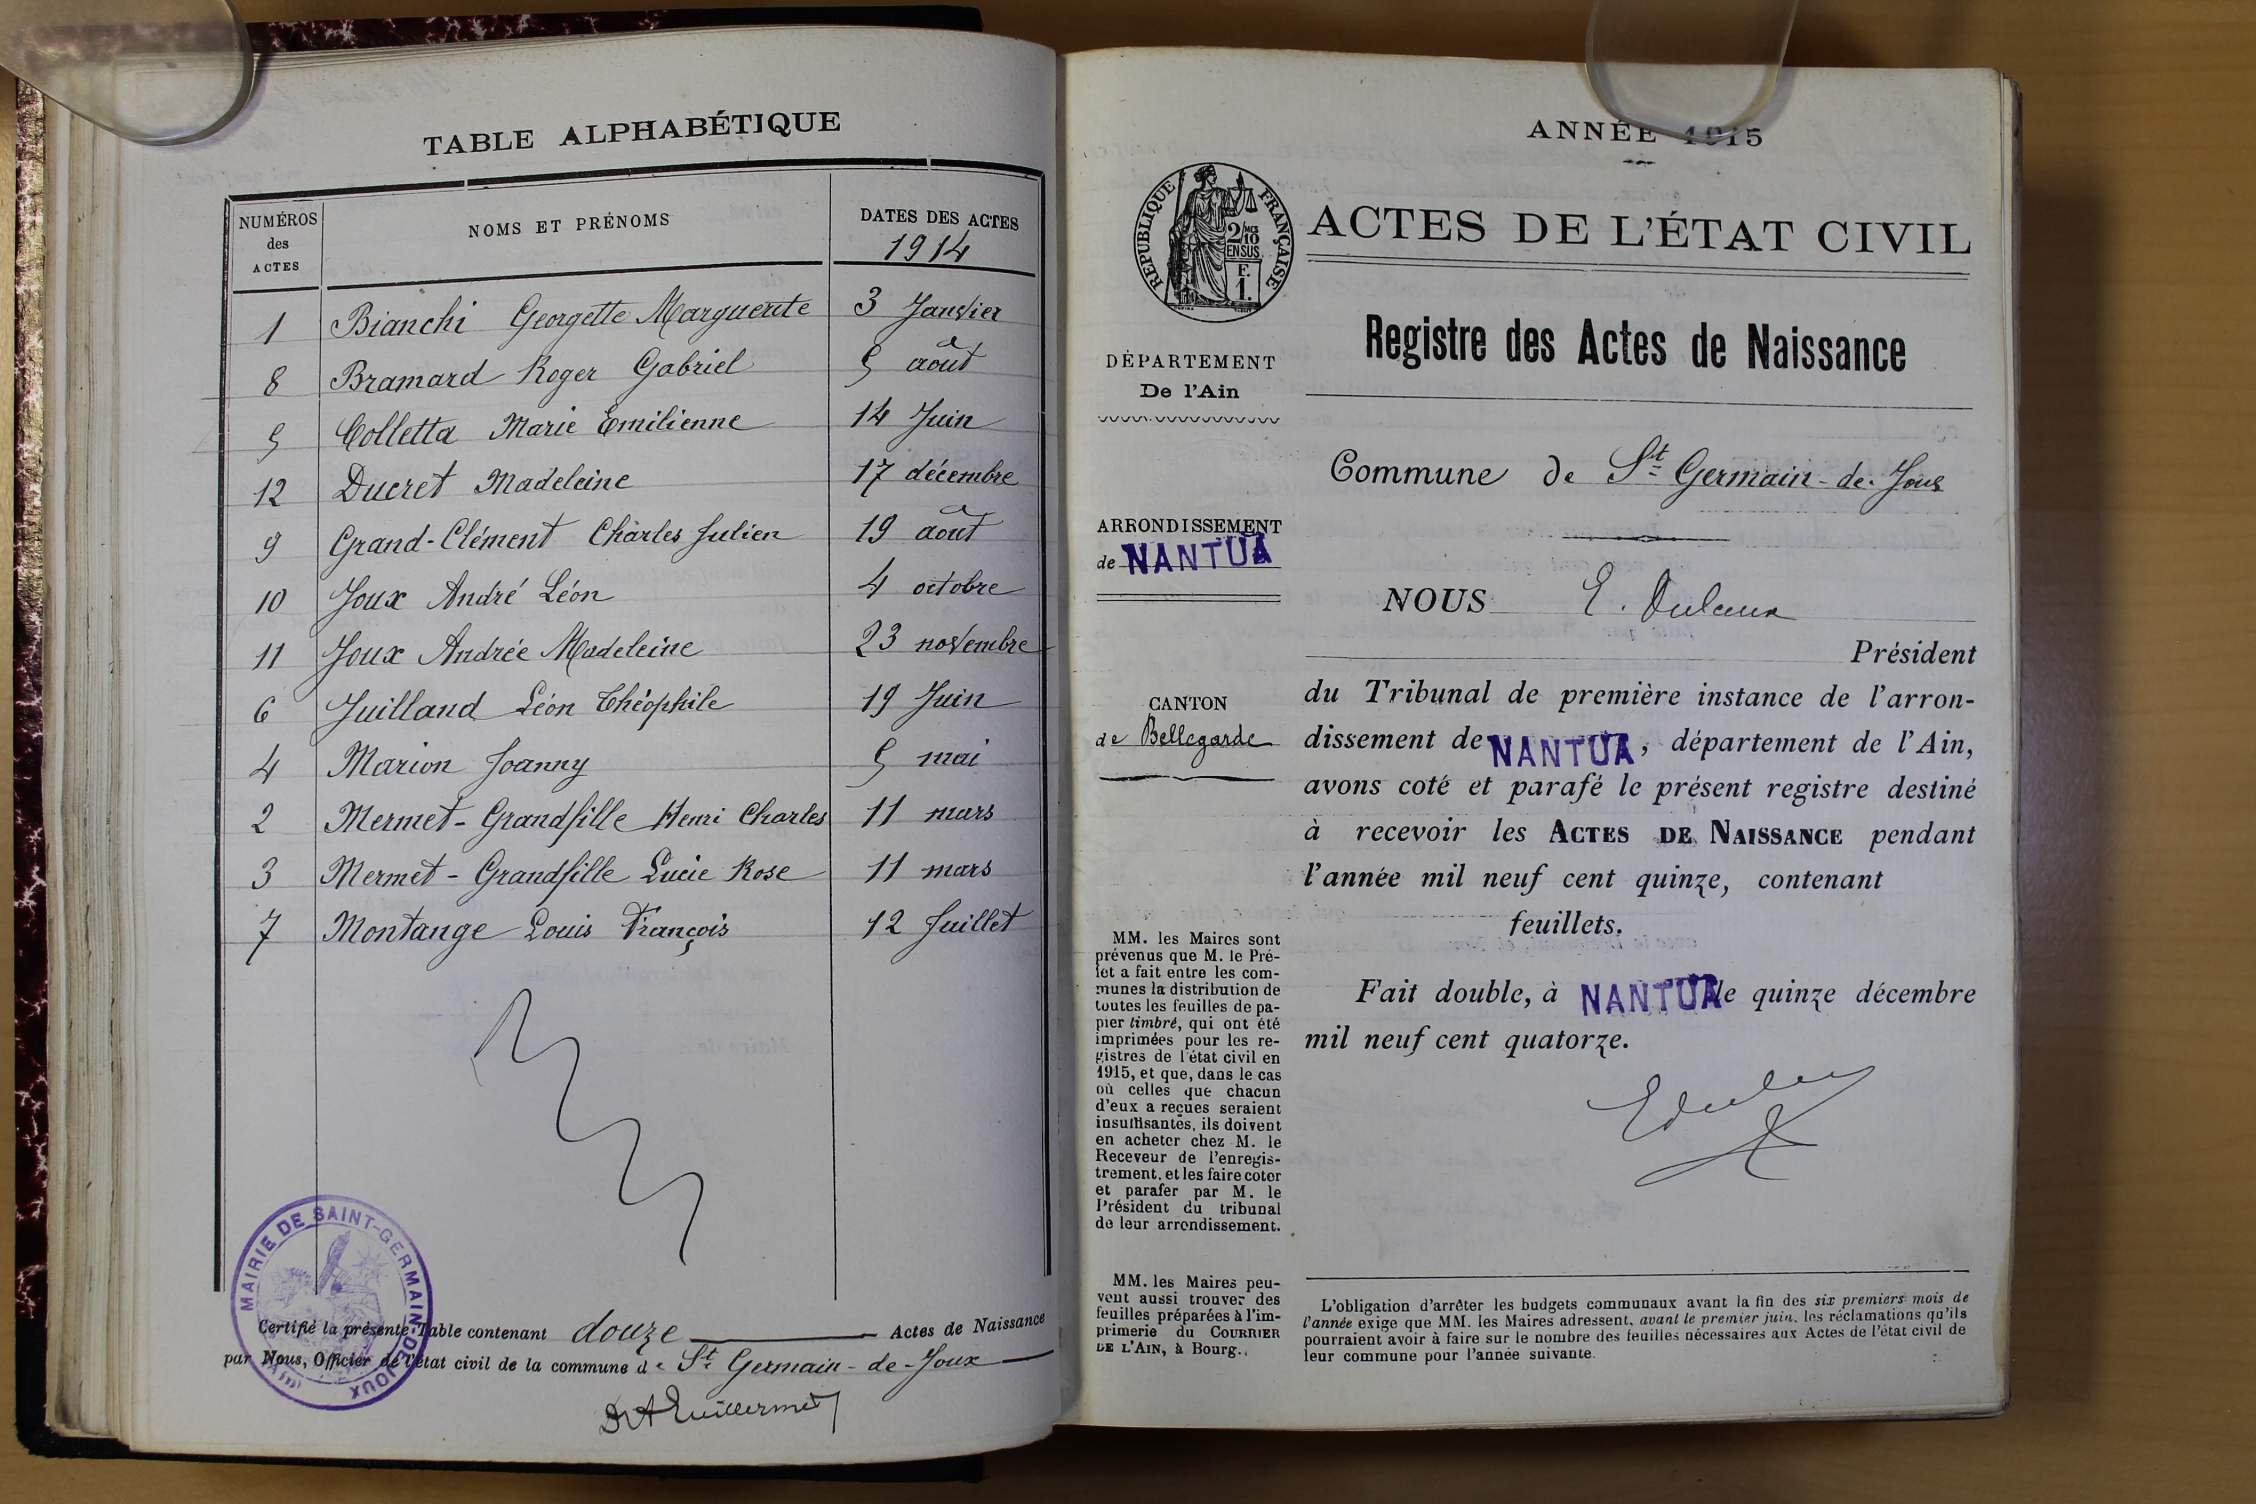 TABLE ALPHABÉTIQUE
NUMÉROS des ACTES
NOMS ET PRÉNOMS
DATES DES ACTES
1914
1 Bianchi Georgette Marguerite 3 Janvier
8 Bramard Roger Gabriel 5 août
5 Colletta Marie Emilienne 14 Juin
12 Ducret Madeleine 17 décembre
9 Grand-Clément Charles Julien 19 août
10 Joux André Léon 4 octobre
11 Joux Andrée Madeleine 23 novembre
6 Juilland Léon Théophile 19 Juin
4 Marion Joanny 5 mai
2 Mermet-Grandfille Henri Charles 11 mars
3 Mermet-Grandfille Lucie Rose 11 mars
7 Montange Louis François 12 Juillet
MAIRIE DE SAINT-GERMAIN DE JOUX
(AIN)
Certifié la présente Table contenant douze Actes de Naissance
par Nous, Officier de l'état civil de la commune de St Germain-de-Joux
Guillermet
ANNÉE 1915
RÉPUBLIQUE FRANÇAISE
2/10 MES
EN SUS
F.
1.
ACTES DE L'ÉTAT CIVIL
Registre des Actes de Naissance
DÉPARTEMENT
De l'Ain
Commune de St Germain-de-Joux
ARRONDISSEMENT
de NANTUA
CANTON
de Bellegarde
NOUS E.
Président
du Tribunal de première instance de l'arron-
dissement de NANTUA, département de l'Ain,
avons coté et parafé le présent registre destiné
à recevoir les ACTES DE NAISSANCE pendant
l'année mil neuf cent quinze, contenant
feuillets.
Fait double, à NANTUA le quinze décembre
mil neuf cent quatorze.
MM. les Maires sont
prévenus que M. le Pré-
fet a fait entre les com-
munes la distribution de
toutes les feuilles de pa-
pier timbré, qui ont été
imprimées pour les re-
gistres de l'état civil en
1915, et que, dans le cas
où celles que chacun
d'eux a reçues seraient
insuffisantes, ils doivent
en acheter chez M. le
Receveur de l'enregis-
trement, et les faire coter
et parafer par M. le
Président du tribunal
de leur arrondissement.
MM. les Maires peu-
vent aussi trouver des
feuilles préparées à l'im-
primerie du COURRIER
DE L'AIN, à Bourg.
L'obligation d'arrêter les budgets communaux avant la fin des six premiers mois de
l'année exige que MM. les Maires adressent, avant le premier juin, les réclamations qu'ils
pourraient avoir à faire sur le nombre des feuilles nécessaires aux Actes de l'état civil de
leur commune pour l'année suivante.